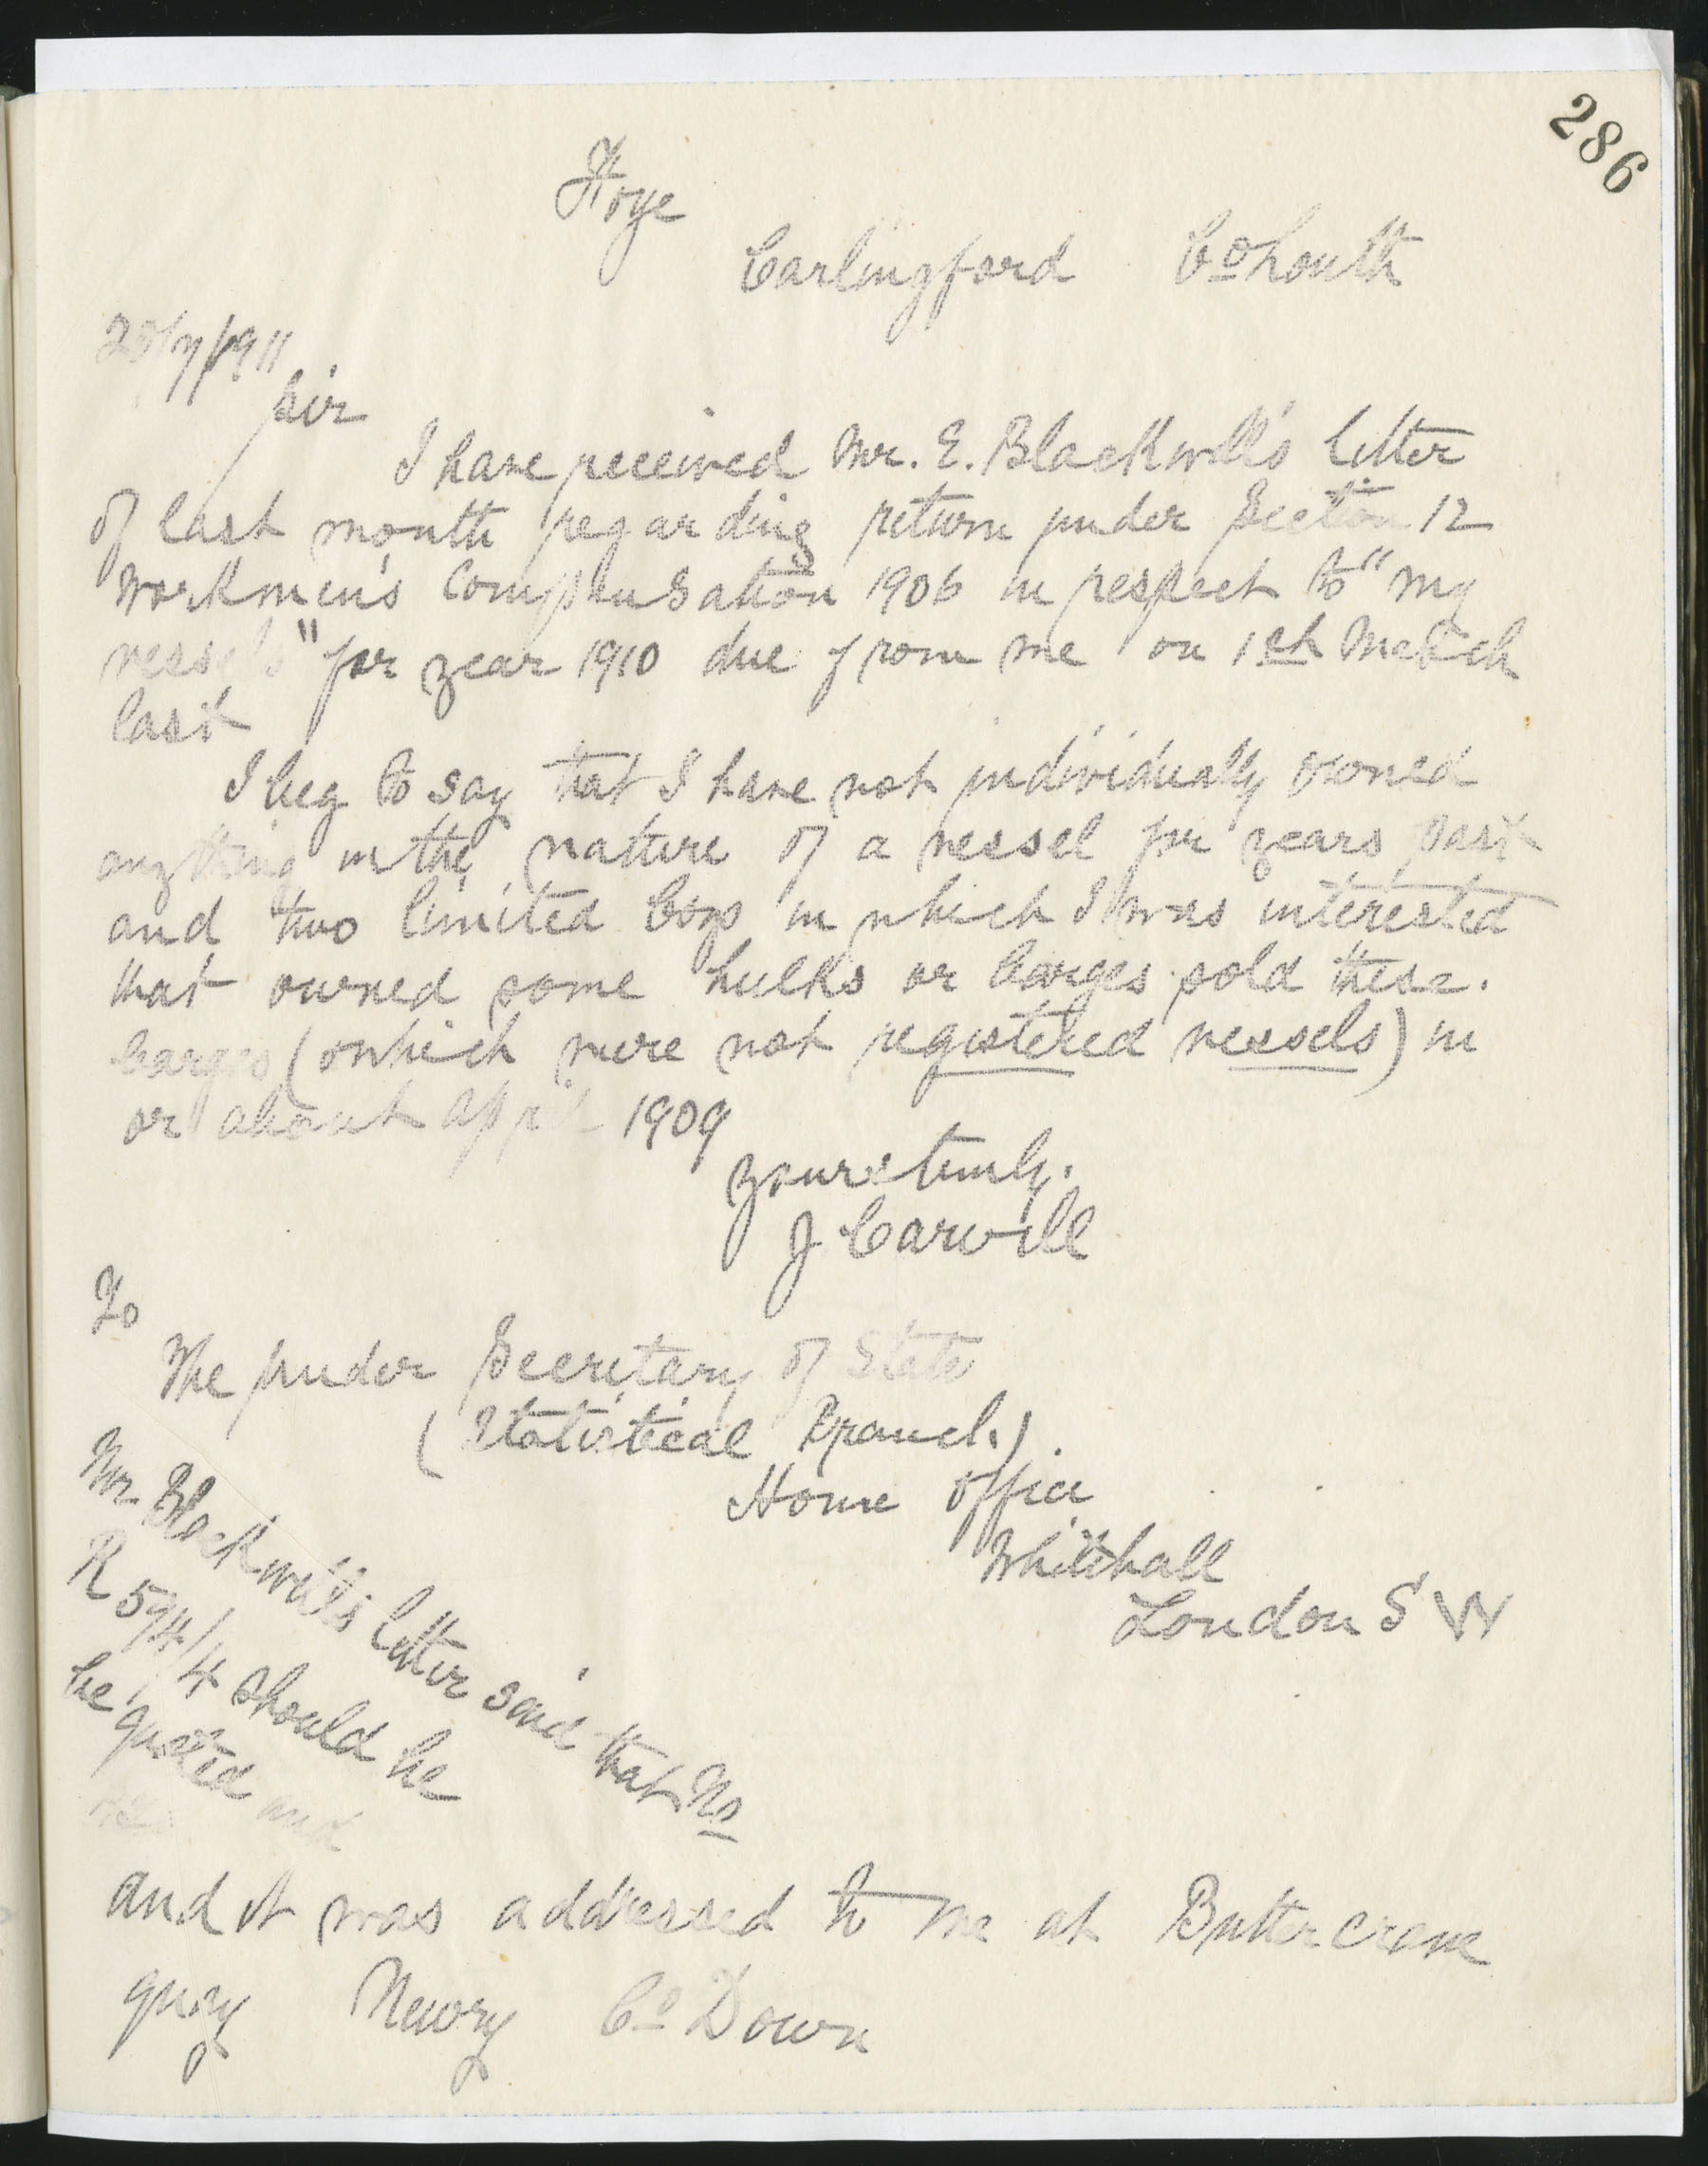 286
Carlingford Co Louth
/7/1911
Sir
I have received Mr. E. Blackwell's letter
of last month regarding return under Section 12
Workmen's Compensation 1906 in respect to "my
vessels" for year 1910 due from me on 1st March
last
I beg to say that I have not individually owned
anything in the nature of a vessel for years past
and two limited Coys in which I was interested
that owned some hulks or barges sold these.
barges (which were not registered vessels) in
or about April 1909
Yours truly.
J Carvill
To
The under Secretary of State
(Statistical Branch).
Home Office
Whitehall
London S W
Mr Blackwell's letter said that No
R 594/4 should be
be quoted and
and it was addressed to me at Buttercrane
quay Newry Co Down